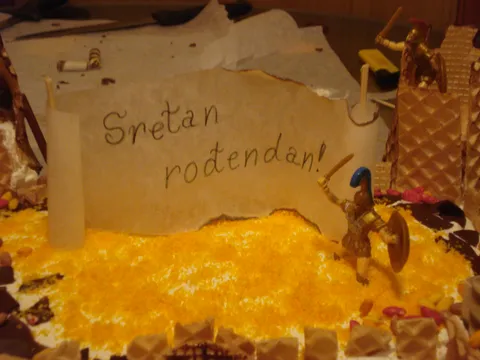 Sretan
rođendan!